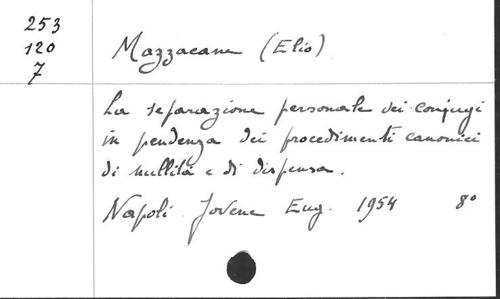 253
120
7
Mazzacane (Elio)
La separazione personale dei conjugi
in pendenza dei procedimenti canonici
di nullità e di dispensa.
Napoli Jovene Eug. 1954 8°